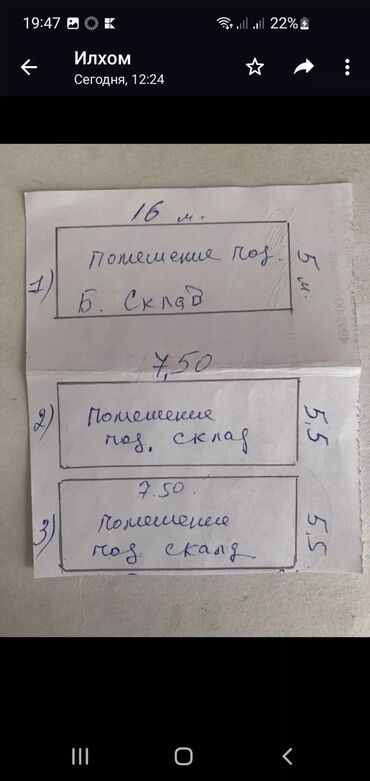 19:47
22%
Илхом
Сегодня, 12:24
16 м.
1)
Помешение под.
Б. Склад
5 м.
7,50
2)
Помешение
под. склад
5,5
7.50.
3)
Помешение
под скалд
5,5